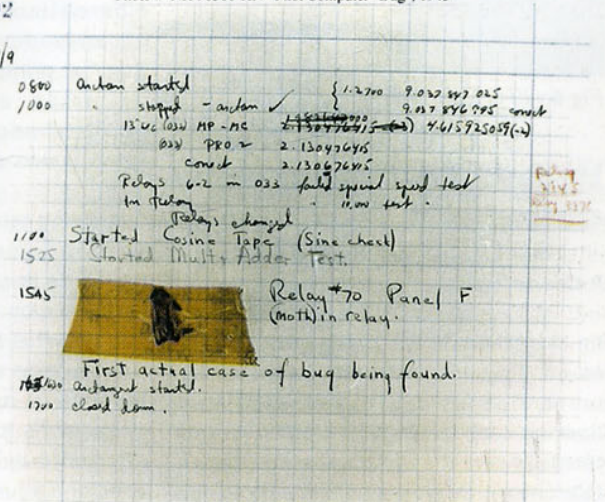 2
/9
0800 Arctan started { 1.2700 9.037 847 025
1000 " stopped - arctan ✓ 9.037 846 795 correct
13"uc (032) MP - MC 2.130476415 (-3) 4.615925059 (-2)
(033) PRO 2 2.130476415
correct 2.130676415
Relays 6-2 in 033 failed special speed test
In Relay " 10,000 test .
Relays changed
1100 Started Cosine Tape (Sine check)
1525 Started Mult + Adder Test.
1545 Relay #70 Panel F
(moth) in relay.
First actual case of bug being found.
1600 arctangent started.
1700 closed down .
Relay
Relay 3370